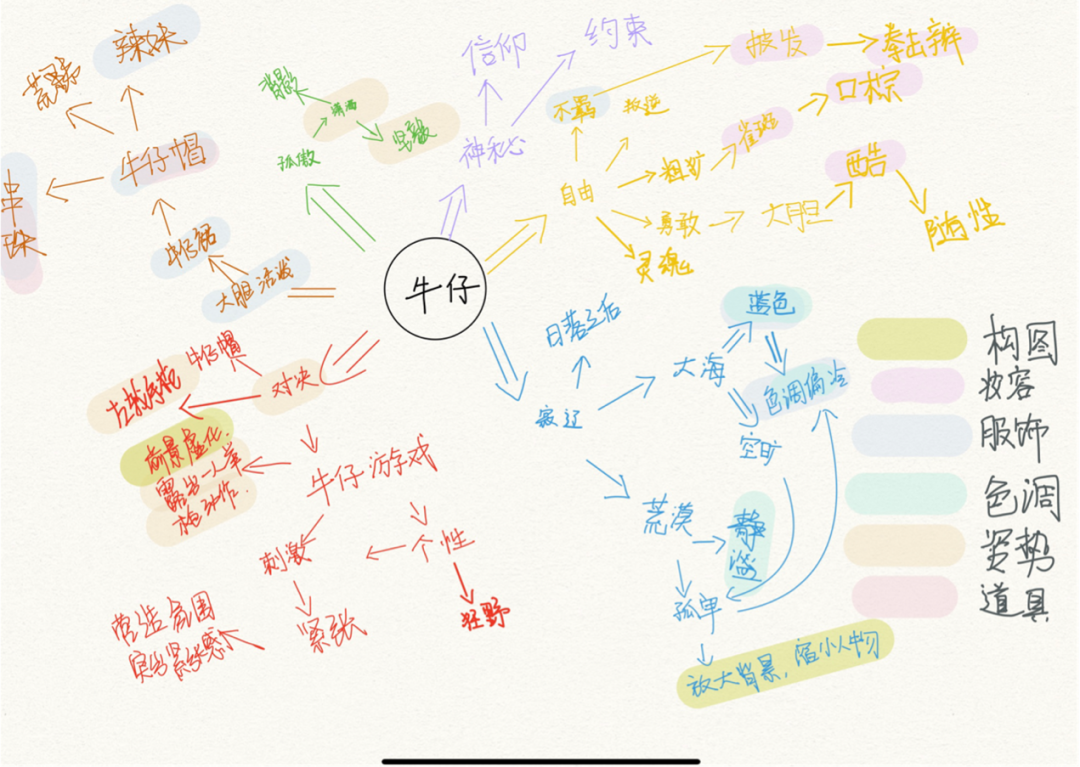 辣妹
荒野
牛仔帽
串
珠
牛仔裙
大胆 活泼
背影
潇洒
坚毅
孤傲
信仰
约束
神秘
不羁
叛逆
披发
拳击辫
口棕
雀斑
粗旷
自由
勇敢
大胆
酷
随性
灵魂
牛仔
日落之后
寂辽
大海
蓝色
色调偏冷
空旷
荒漠
静谧
孤单
放大背景，缩小人物
对决
牛仔帽
左轮手枪
前景虚化.
露出一人举
枪动作.
牛仔游戏
刺激
个性
紧张
狂野
营造氛围
突出紧张感
构图
妆容
服饰
色调
姿势
道具